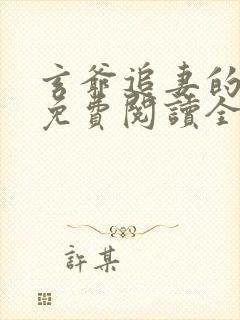 玄爺追妻的
免費閱讀全
許某